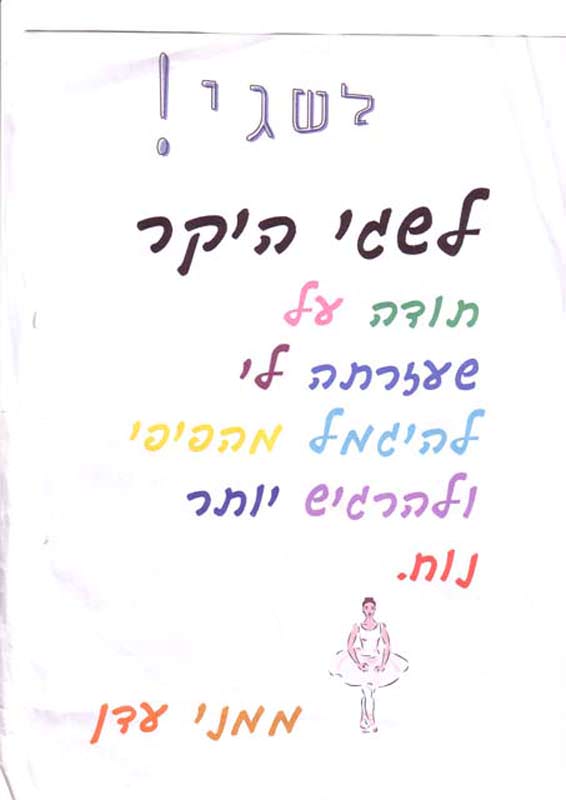 לשגי!
לשגי היקר
תודה על
שעזרתה לי
להיגמל מהפיפי
ולהרגיש יותר
נוח.
ממני עדן